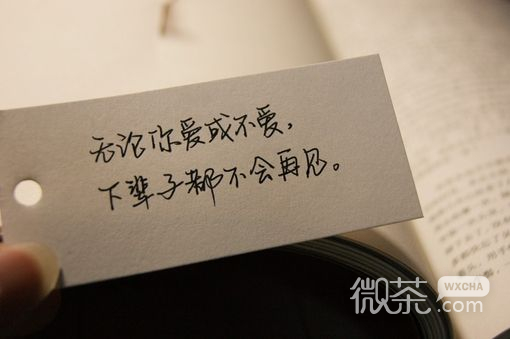 无论你爱或不爱，
下辈子都不会再见。
微茶
WXCHA